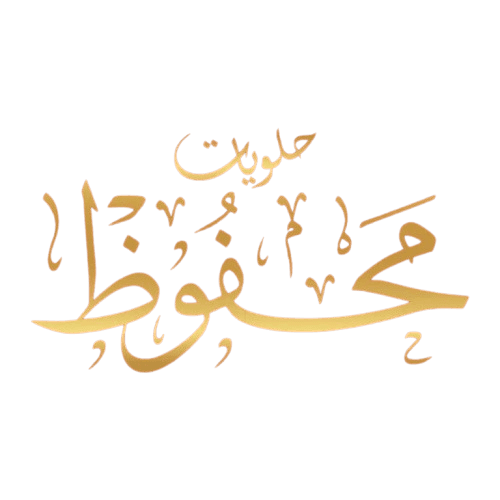 حلويات
مَحفُوظ